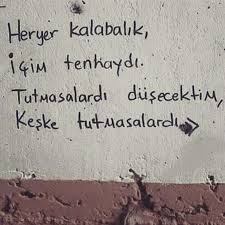 Heryer kalabalık,
İçim tenhaydı.
Tutmasalardı düşecektim,
Keşke tutmasalardı